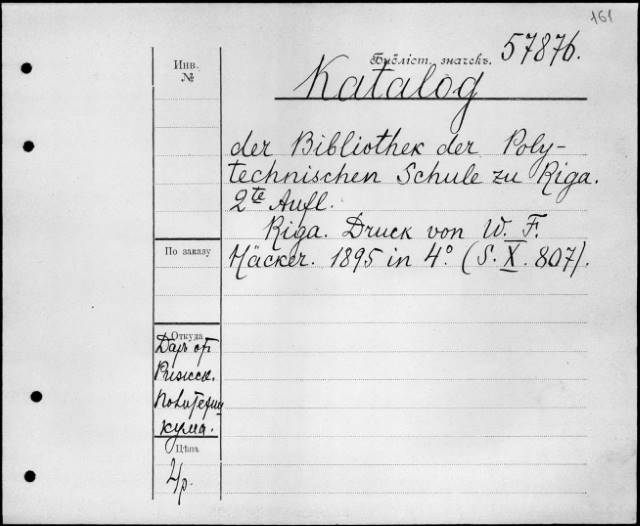 161
Инв.
№
Библіот. значекъ. 57876.
Katalog
der Bibliothek der Poly-
technischen Schule zu Riga.
2te Aufl.
Riga. Druck von W. F.
Häcker. 1895 in 4°. (S. X. 807).
По заказу
Откуда
Даръ от
Рижск.
Политехни
кума.
Цѣна
2/р.